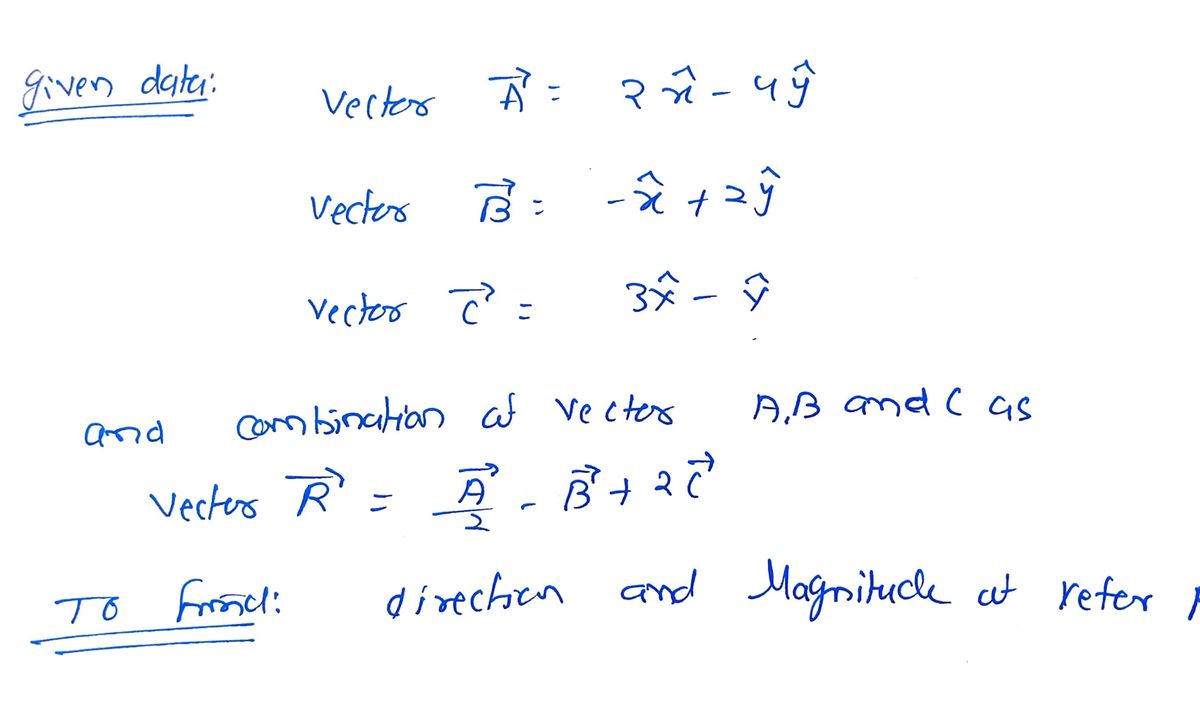 given data: Vector A⃗ = 2x̂ - 4ŷ
Vector B⃗ = -x̂ + 2ŷ
Vector C⃗ = 3x̂ - ŷ
and combination of vector A,B and C as
Vector R⃗ = A⃗/2 - B⃗ + 2C⃗
To find: direction and Magnitude of